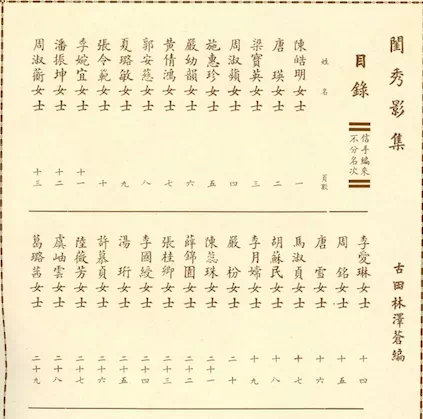 閨秀影集
古田林澤蒼編
目錄
信手編來
不分名次
姓名 頁數
陳皓明女士 一
唐瑛女士 二
梁寶英女士 三
周淑蘋女士 四
施惠珍女士 五
嚴幼韻女士 六
黃倩鴻女士 七
郭安慈女士 八
夏璐敏女士 九
張令範女士 十
李婉宜女士 十一
潘振坤女士 十二
周淑蘅女士 十三
李愛琳女士 十四
周銘女士 十五
唐雪女士 十六
馬淑貞女士 十七
胡蘇民女士 十八
李月嫦女士 十九
嚴枌女士 二十
陳蕊珠女士 二十一
薛錦園女士 二十二
張桂卿女士 二十三
李國綬女士 二十四
湯珩女士 二十五
許慕貞女士 二十六
陸薇芳女士 二十七
虞岫雲女士 二十八
葛璐茜女士 二十九